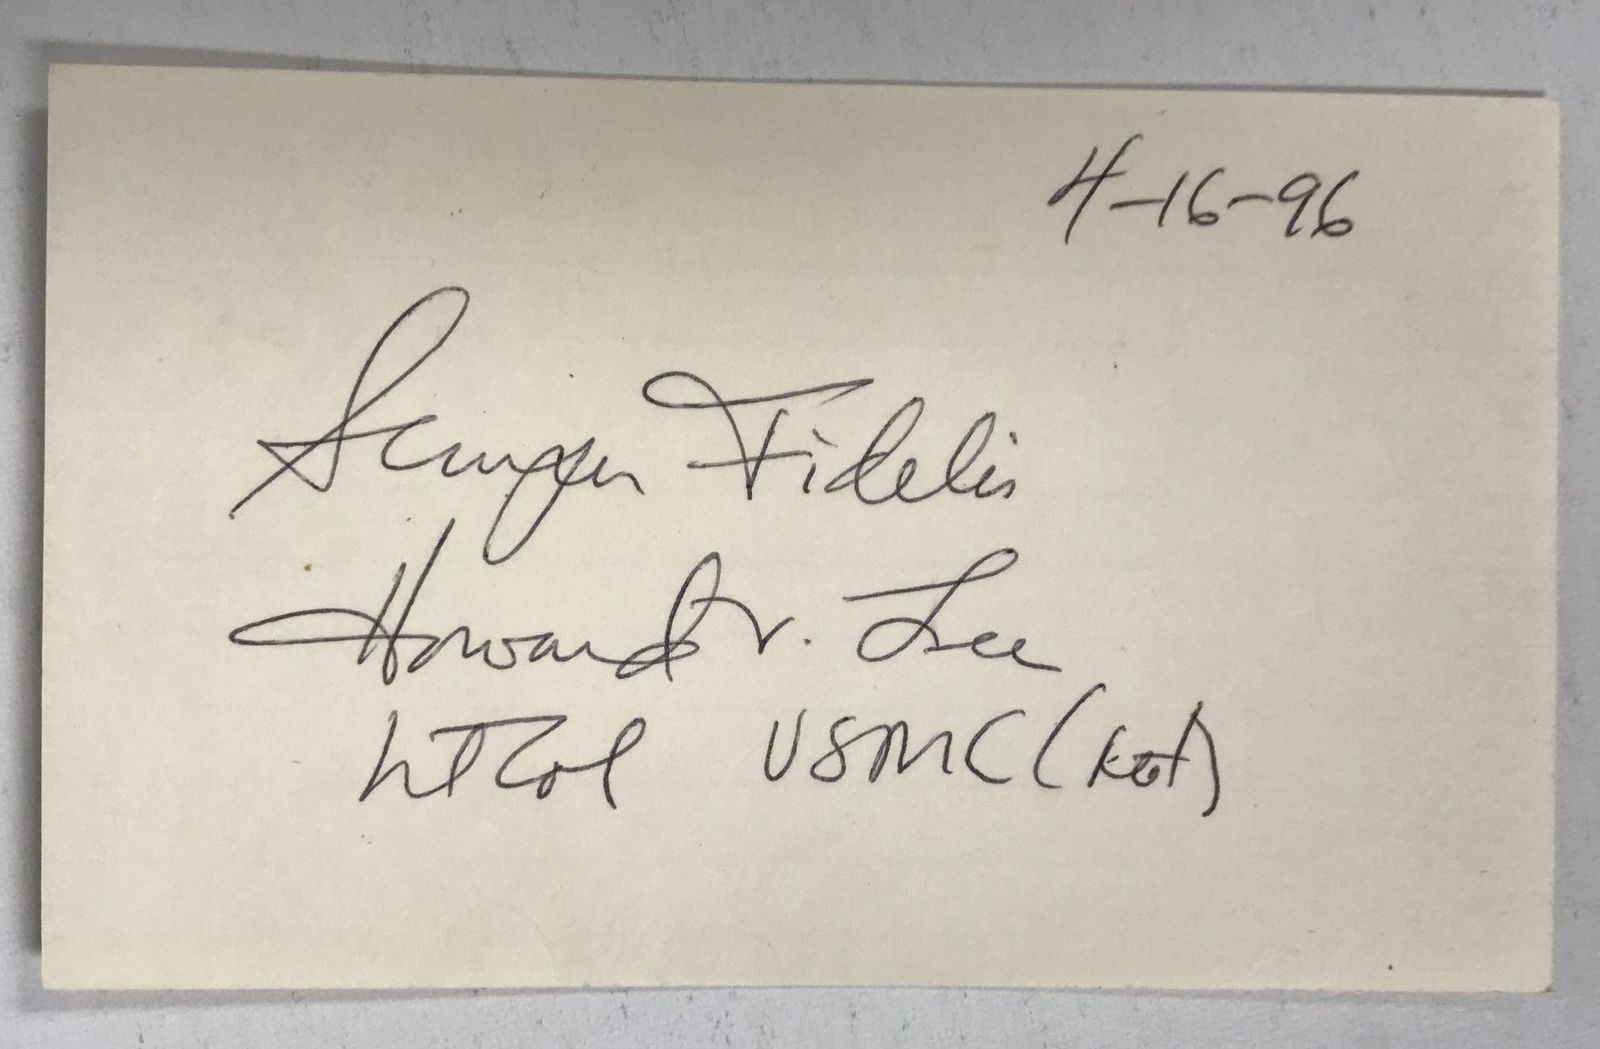 4-16-96
Semper Fidelis
Howard V. Lee
LTCol USMC (Ret)